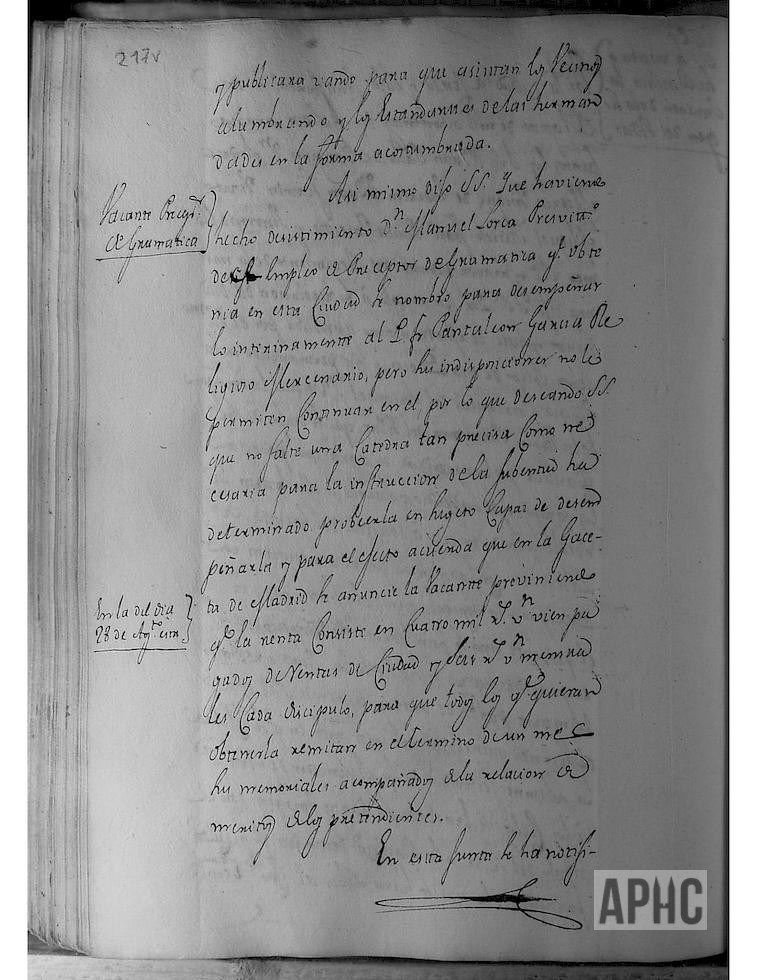 217v
y publicara vando para que asistan los Vecinos
alumbrando y los Estandartes de las herman
dades en la forma acostumbrada.
Vacante Precep.r
de Gramatica
Asi mismo dijo SS. Que haviendo
hecho desistimiento D.n Manuel Lorca Presvit.o
de el Empleo de Preceptor de Gramatica q.e obte
nia en esta Ciudad se nombro para desempeñar
lo interinamente al P. fr Pantaleon Garcia Re
ligioso Mercenario, pero sus indisposiciones no le
permiten Continuar en el por lo que deseando SS.
que no falte una Catedra tan precisa Como ne
cesaria para la instruccion de la Jubentud ha
determinado probeerla en sugeto Capaz de desem
peñarla y para el efecto acuerda que en la Gace-
ta de Madrid se anuncie la Vacante previniendo
En la del dia
28 de Ag.to esta
q.e la renta Consiste en Cuatro mil r.s v.n vien pa
gados de Rentas de Ciudad y seis r.s v.n mensua
les Cada discipulo, para que todos los q.e quieran
obtenerla remitan en el termino de un mes
sus memoriales acompañados de la relacion de
meritos de los pretendientes.
En esta Junta se ha notifi-
APHC